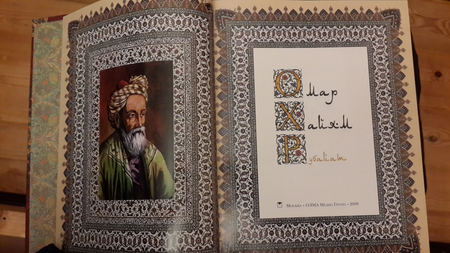 Омар
Хайям
Рубаiат
Москва • ОЛМА Медиа Групп • 2009